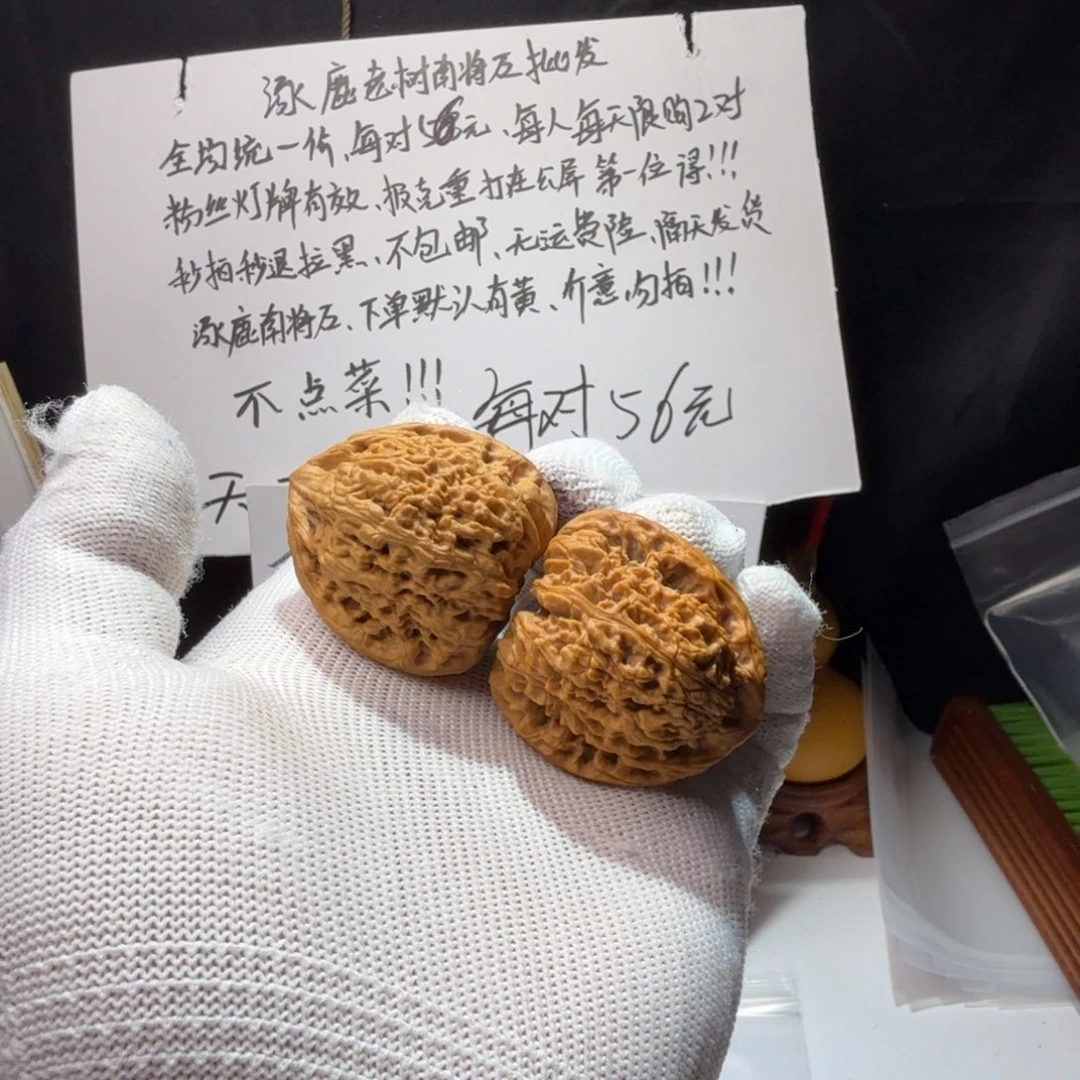 涿鹿老树南将石批发
全均统一价、每对56元、每人每天限购2对
粉丝灯牌有效、报克重打在公屏第一位得!!!
秒拍秒退拉黑、不包邮、无运费险、隔天发货
涿鹿南将石、下单默认有黄、介意勿拍!!!
不点菜!!! 每对56元
天